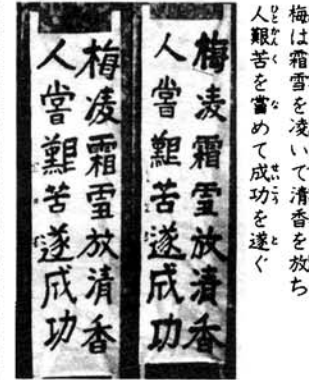 梅は霜雪を凌いで清香を放ち
人艱苦を嘗めて成功を遂ぐ
梅凌霜雪放清香
人嘗艱苦遂成功
梅凌霜雪放清香
人嘗艱苦遂成功